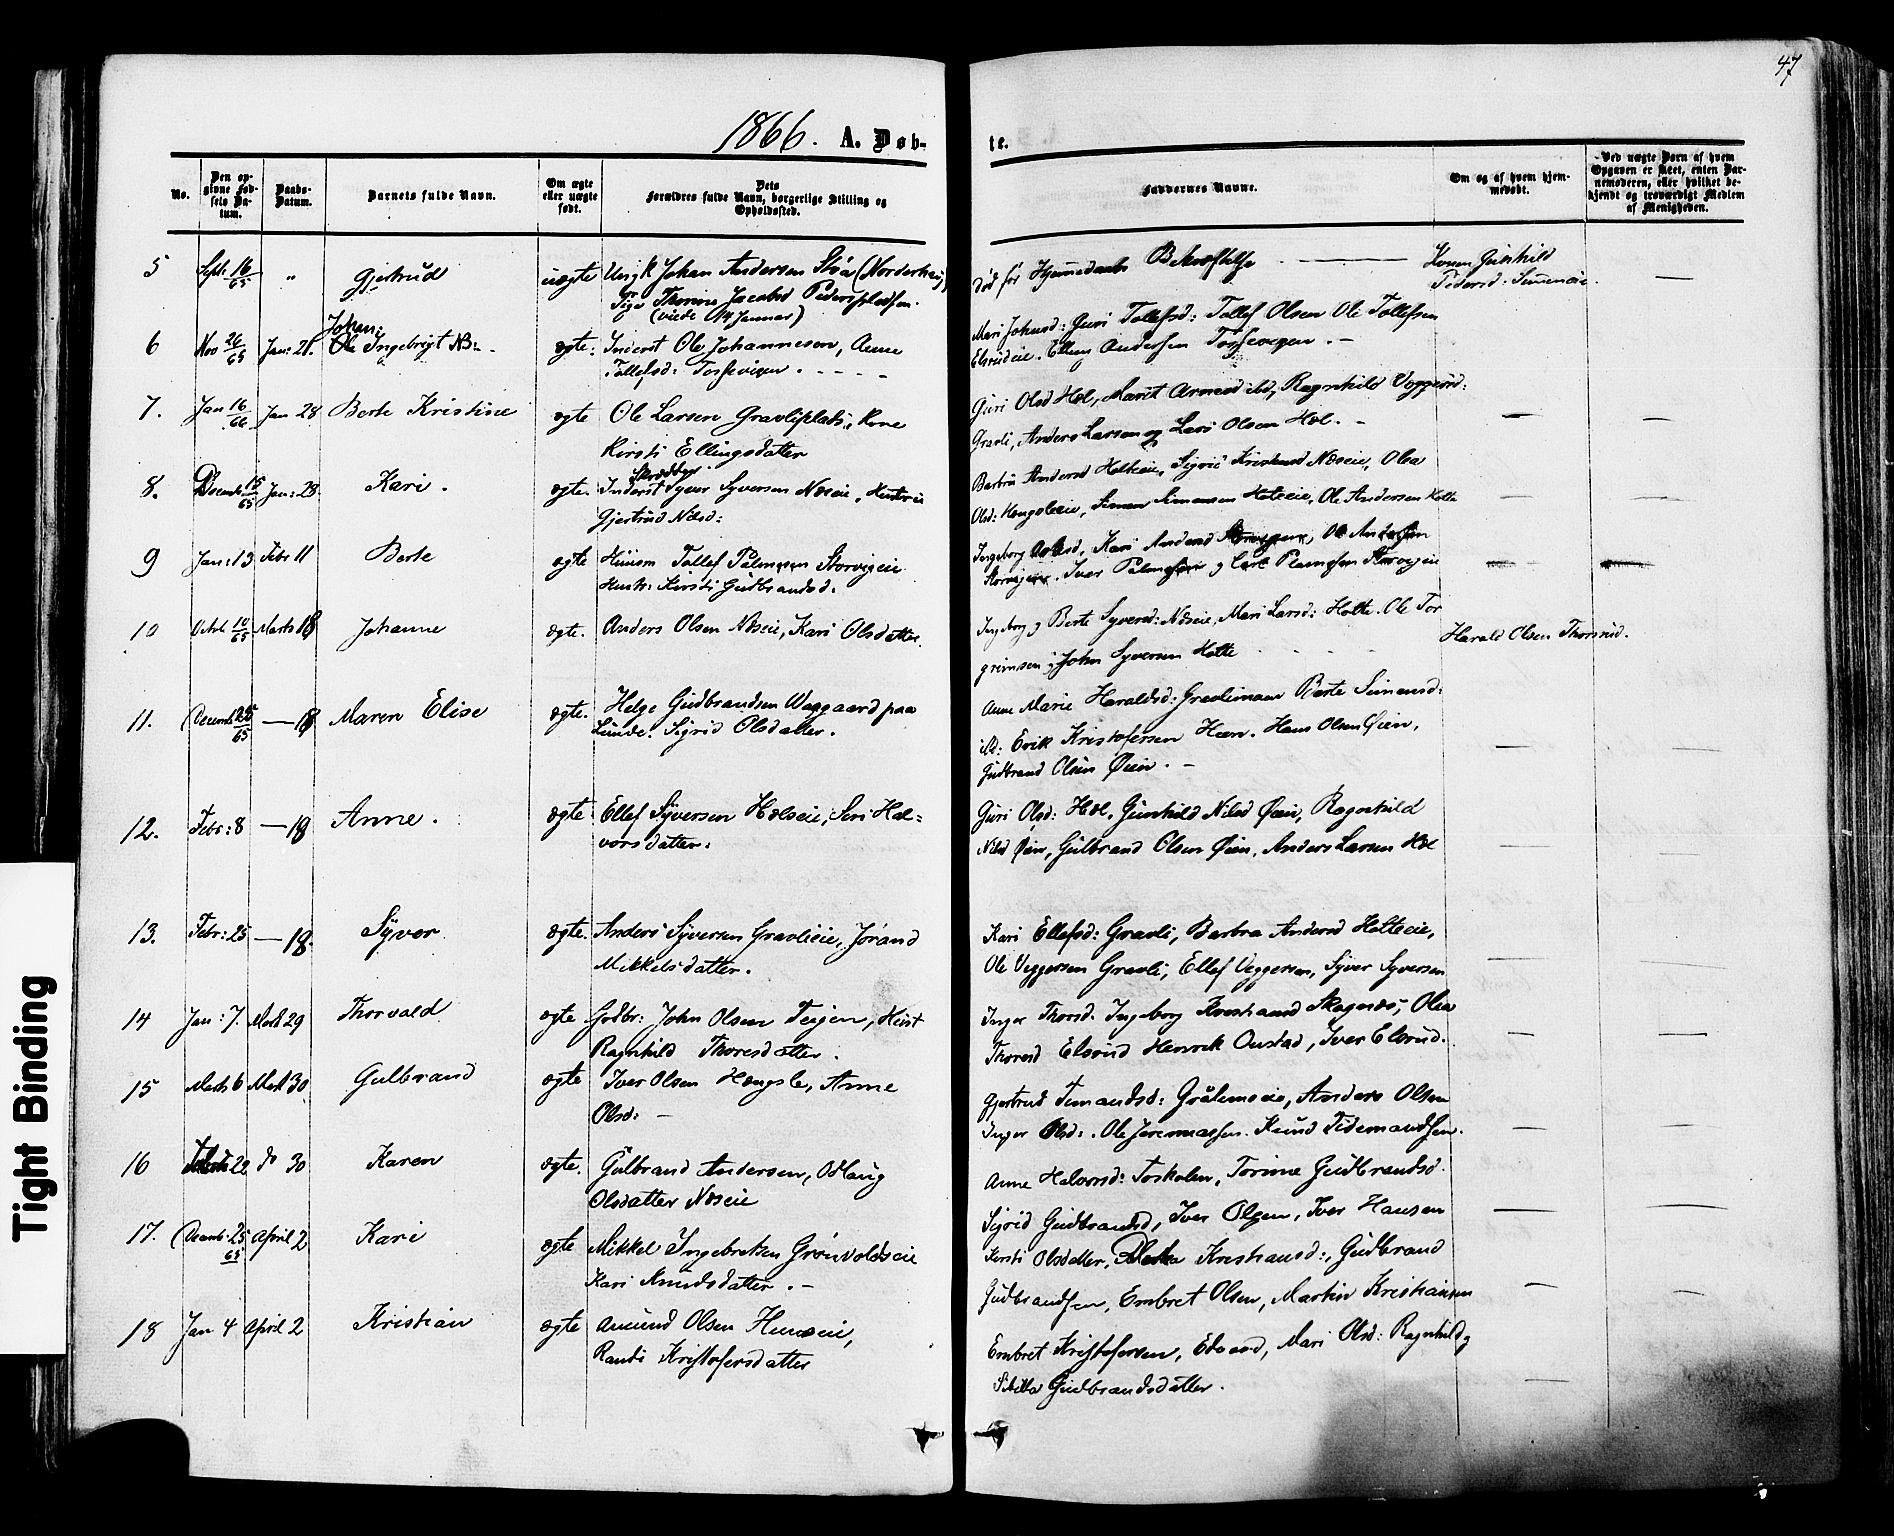 47
1866. A. Døb-
te.
No.
Den op-
givne Fød-
sels Da-
tum.
Daabs-
Datum.
Barnets fulde Navn.
Om ægte
eller uægte
født.
Dets
Forældres fulde Navn, borgerlige Stilling og
Opholdssted.
Faddernes Navne.
Om og af hvem hjem-
medøbt.
Ved uægte Børn af hvem
Opgaven er skeet, enten Bar-
nemoderen, eller hvilket be-
kjendt og troværdigt Medlem
af Menigheden.
5 Sept: 16/65 " Gjertrud uægte Ungk Johan Andersen Stôa (Norderhau)
Pige Thorine Jacobsd Pedersplassen.
(viede 14 Januar)
død før Hjemmedaabs Bekræftelse
Konen Gunhild
Pedersd:
Johan:
6 Nov 26/65 Jan: 21. Ole Ingebrigt NB: ægte: Inderst Ole Johannesen, Anne
Tollefsd:
Mari Johnsd: Guri Tollefsd: Tollef Olsen Ole Tollefsen
Elsrudeie. Elling Andersen
7. Jan 16/66 Jan 28 Berte Kristine ægte Ole Larsen Gravliplads, Kone
Kirsti Ellingsdatter
Guri Olsd Hol, Marit ibd, Ragnhild
Gravli, Anders Larsen og Lars Olsen Hol. -
8. Decemb 15/65 Jan: 28. Kari. ægte. Inderst Syver Syversen Næseie, Hustru
Gjertrud Nilsd:
Barbra Andersd Holteeie, Sigrid Kristiansd Næseie, Olea
Olsd: Hengsleeie, Simen Simensen Holteeie, Ole Andersen Holte
9 Jan: 13 Febr 11 Berte ægte Huusm Tollef Palmesen Storvigeie
Hustr: Kirsti Gudbrandsd:
Ingeborg Kari Andersd Ole Andersen
Iver Palmesen og Carl
10 Octob 10/65 Marts 18 Johanne ægte. Anders Olsen Næseie, Kari Olsdatter.
Ingeborg og Berte Syversd: Næseie, Mari Larsd: Holte. Ole Tor
grimsen og John Syversen Holte
Harald Olsen Thorsrud.
11. Decemb 25/65 — 18 Maren Elise ægte. Helge Gudbrandsen Waagaard paa
Lunde. Sigrid Olsdatter.
Anne Marie Haraldsd: Gravlimoen Berte Simensd:
ibd: Erik Kristofersen Hæn. Hans Olsen Øien,
Gudbrand Olsen Øien. -
12. Febr: 8 — 18 Anne. ægte Ellef Syversen Holseie, Siri Hal=
vorsdatter.
Guri Olsd: Hol, Gunhild Nilsd Øien, Ragnhild
Nilsd Øien, Gulbrand Olsen Øien, Anders Larsen Hol
13. Febr: 25 — 18. Syver ægte. Anders Syversen Gravlieie, Jørand
Mikkelsdatter.
Kari Ellefsd: Gravli, Barbra Andersd Holteeie,
Ole Veggersen Gravli, Ellef Veggersen, Syver Syversen
14 Jan: 7. Marts 29 Thorvald ægte. Grdbr: John Olsen Teigen, Hust
Ragnhild Thoresdatter.
Inger Thorsd. Ingeborg Kristiansd Skagnæs, Olea
Thoresd Elsrud Henrik Onstad, Iver Elsrud.
15 Marts 6 Marts 30 Gulbrand ægte Iver Olsen Hengsle, Anne
Olsd: —
Gjertrud Anders Olsen
Inger Olsd:. Ole Jeremiassen. Knud Tidemandsen.
16 22 do 30 Karen ægte. Gulbrand Andersen, Odlaug
Olsdatter Næseie
Anne Halvorsd: Torine Gudbrandsd.
Sigrid Gudbrandsd, Iver Olsen, Iver Hansen
17. Decemb. 25/65 April 2 Kari ægte Mikkel Ingebretsen Grønvoldseie
Kari Knudsdatter. -
Kirsti Olsdatter, Kristiansd:, Gudbrand
Gudbrandsen, Embret Olsen, Martin Kristiansen
18 Jan 4 April 2 Kristian ægte Amund Olsen
Randi Kristofersdatter
Embret Kristofersen, Edvard, Mari Olsd: Ragnhild og
Gudbrandsdatter.
Tight Binding